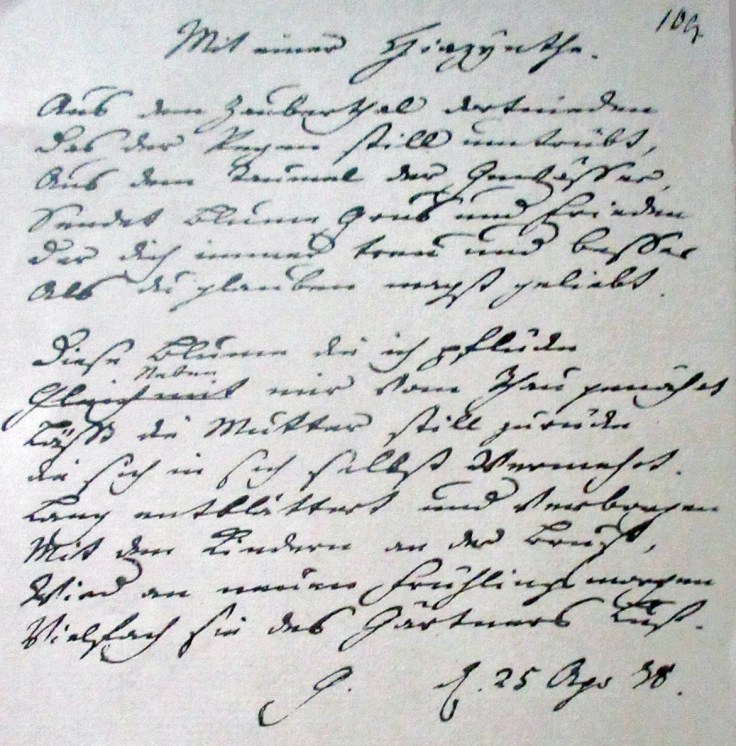 109
Mit einer Hiazynthe.
Aus dem Zauberthal dortnieden
Das der Regen still umtrübt,
Aus dem Taumel der Gewässer,
Sendet Blume Gruß und Frieden
Der dich immer treu und besser
Als du glauben magst geliebt.
Diese Blume die ich pflücke
Neben
Gleich mit mir vom Thau genährt
Läßt die Mutter still zurücke
Die sich in sich selbst vermehrt.
Lang entblättert und verborgen
Mit den Kindern an der Brust,
Wird am neuen Frühlingsmorgen
Vielfach sie des Gärtners Lust.
G. 25 Apr 38.